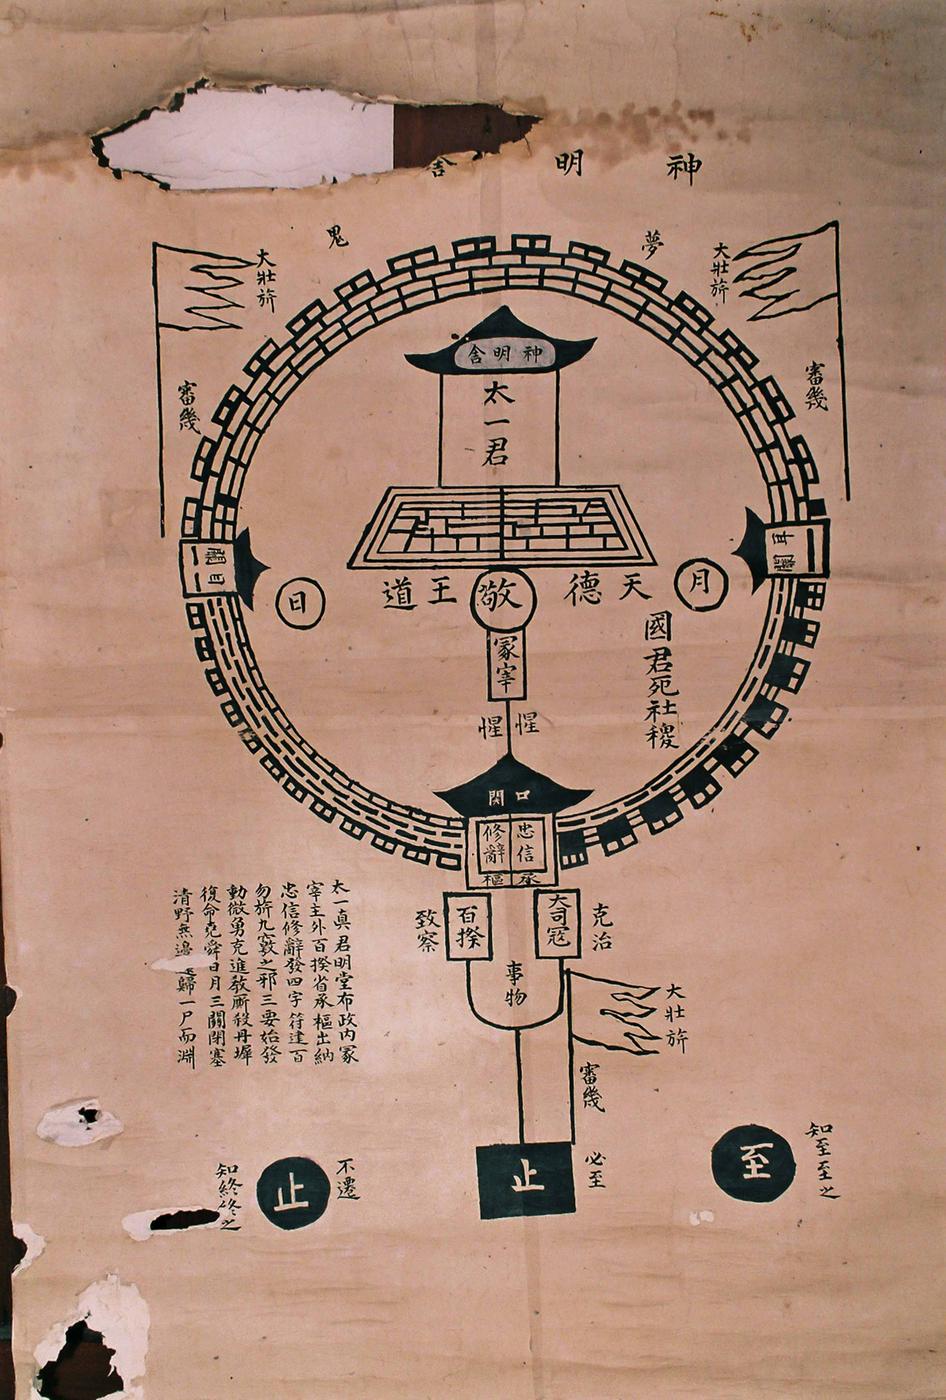 神明舍
夢
鬼
大壯旂
審幾
大壯旂
審幾
神明舍
太一君
耳關
目關
月
日
天德
敬
王道
國君死社稷
冢宰
惺惺
口関
忠信
修辭
承樞
克治
大司寇
百揆
致察
事物
大壯旂
審幾
太一眞君明堂布政內冢
宰主外百揆省承樞出納
忠信修辭發四字符建百
勿旂九竅之邪三要始發
動微勇克進敎厮殺丹墀
復命堯舜日月三關閉塞
清野無邊歸一尸而淵
知至至之
至
必至
止
不遷
止
知終終之